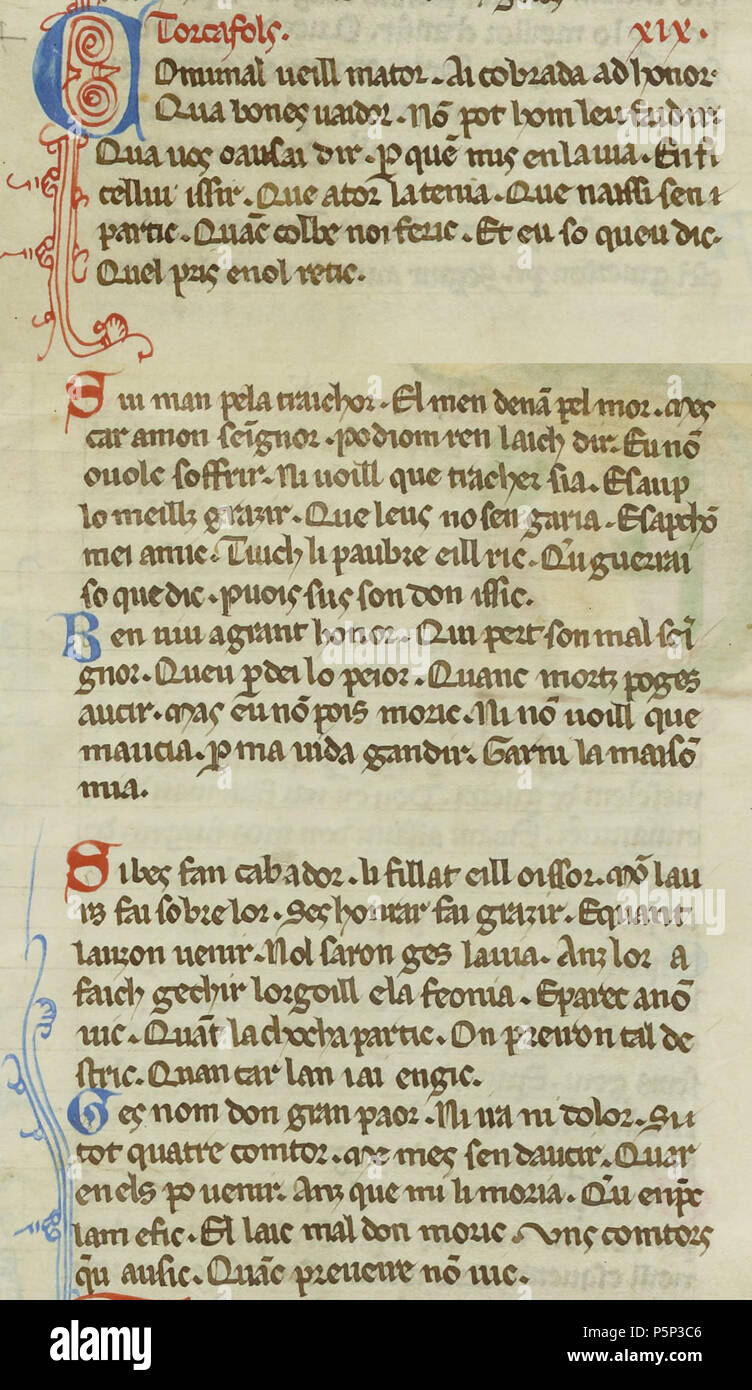 Torcafols. XIX.
Comunal ueill mator. Ai cobrada ad honor.
Qua bones uaidor. Nõ pot hom leu
Qua uos oausai dir. p̱ quẽ mis en la uia.
cellui issir. Que ator la tenia. Que naissi sen
partic. Quãc colbe noi feric. Et eu so queu dic.
Quel pris enol retic.
Sui man pela traichor. El men denã pel mor. Mes
car amon seignor. Podiom ren laich dir. Eu nõ
ouolc soffrir. Ni uoill que tracher sia. Esaup
lo meillz grazir. Que leus no sen garia.
mei amic. Tuich li paubre eill ric. Qu guerrai
so que dic. Puois sus son don issic.
Ben uiu agrant honor. Qui pert son mal sei
gnor. Queu p̱dei lo peior. Quanc mortz poges
aucir. Mas eu nõ pois moric. Ni nõ uoill que
maucia. p̱ ma uida gandir. Garni la maisõ
mia.
Si bes fan cabador. li fillat eill oissor. Mõ lau
is fai sobre lor. Ses honrar fai grazir. Equant
lauzon uenir. Nol saron ges la uia. Anz lor a
faich gechir lorgoill ela feonia. Eparec anõ
uic. Quãt la chocha partic. On preiron tal de
stric. Quan car lan iai engic.
Ges nom don gran paor. Ni ira ni dolor. Sii
tot quatre comtor. me mes sen daucir. Quar
en els po uenir. Anz que mi li moria.
lam efic. El laic mal don moric. Uns comtors
qu ausic. Quãc preueire nõ uic.
alamy
Image ID: P5P3C6
www.alamy.com